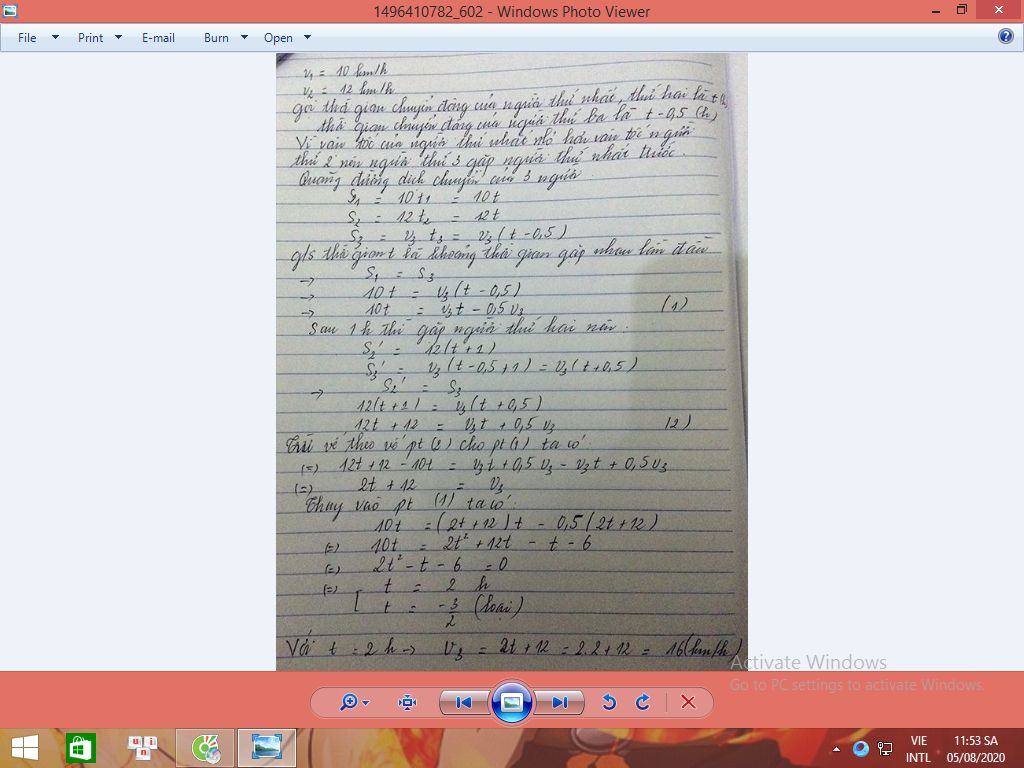 1496410782_602 - Windows Photo Viewer
File Print E-mail Burn Open
v₁ = 10 km/h
v₂ = 12 km/h
gọi thời gian chuyển động của người thứ nhất, thứ hai là t (h)
thời gian chuyển động của người thứ ba là t - 0,5 (h)
Vì vận tốc của người thứ nhất nhỏ hơn vận tốc người
thứ 2 nên người thứ 3 gặp người thứ nhất trước.
Quãng đường dịch chuyển của 3 người
S₁ = 10t₁ = 10t
S₂ = 12t₂ = 12t
S₃ = v₃ t₃ = v₃(t - 0,5)
g/s thời gian t là khoảng thời gian gặp nhau lần đầu
→ S₁ = S₃
→ 10t = v₃(t - 0,5)
→ 10t = v₃t - 0,5v₃ (1)
Sau 1h thì gặp người thứ hai nên.
S₂' = 12(t+1)
S₃' = v₃(t - 0,5 + 1) = v₃(t + 0,5)
→ S₂' = S₃
12(t+1) = v₃(t + 0,5)
12t + 12 = v₃t + 0,5v₃ (2)
Trừ vế theo vế pt (2) cho pt (1) ta có:
(=) 12t + 12 - 10t = v₃t + 0,5v₃ - v₃t + 0,5v₃
(=) 2t + 12 = v₃
Thay vào pt (1) ta có:
10t = (2t + 12)t - 0,5(2t + 12)
(=) 10t = 2t² + 12t - t - 6
(=) 2t² - t - 6 = 0
(=) [ t = 2 h
t = -3/2 (loại)
Với t = 2h → v₃ = 2t + 12 = 2.2 + 12 = 16(km/h)
Activate Windows
Go to PC settings to activate Windows.
VIE 11:53 SA
INTL 05/08/2020